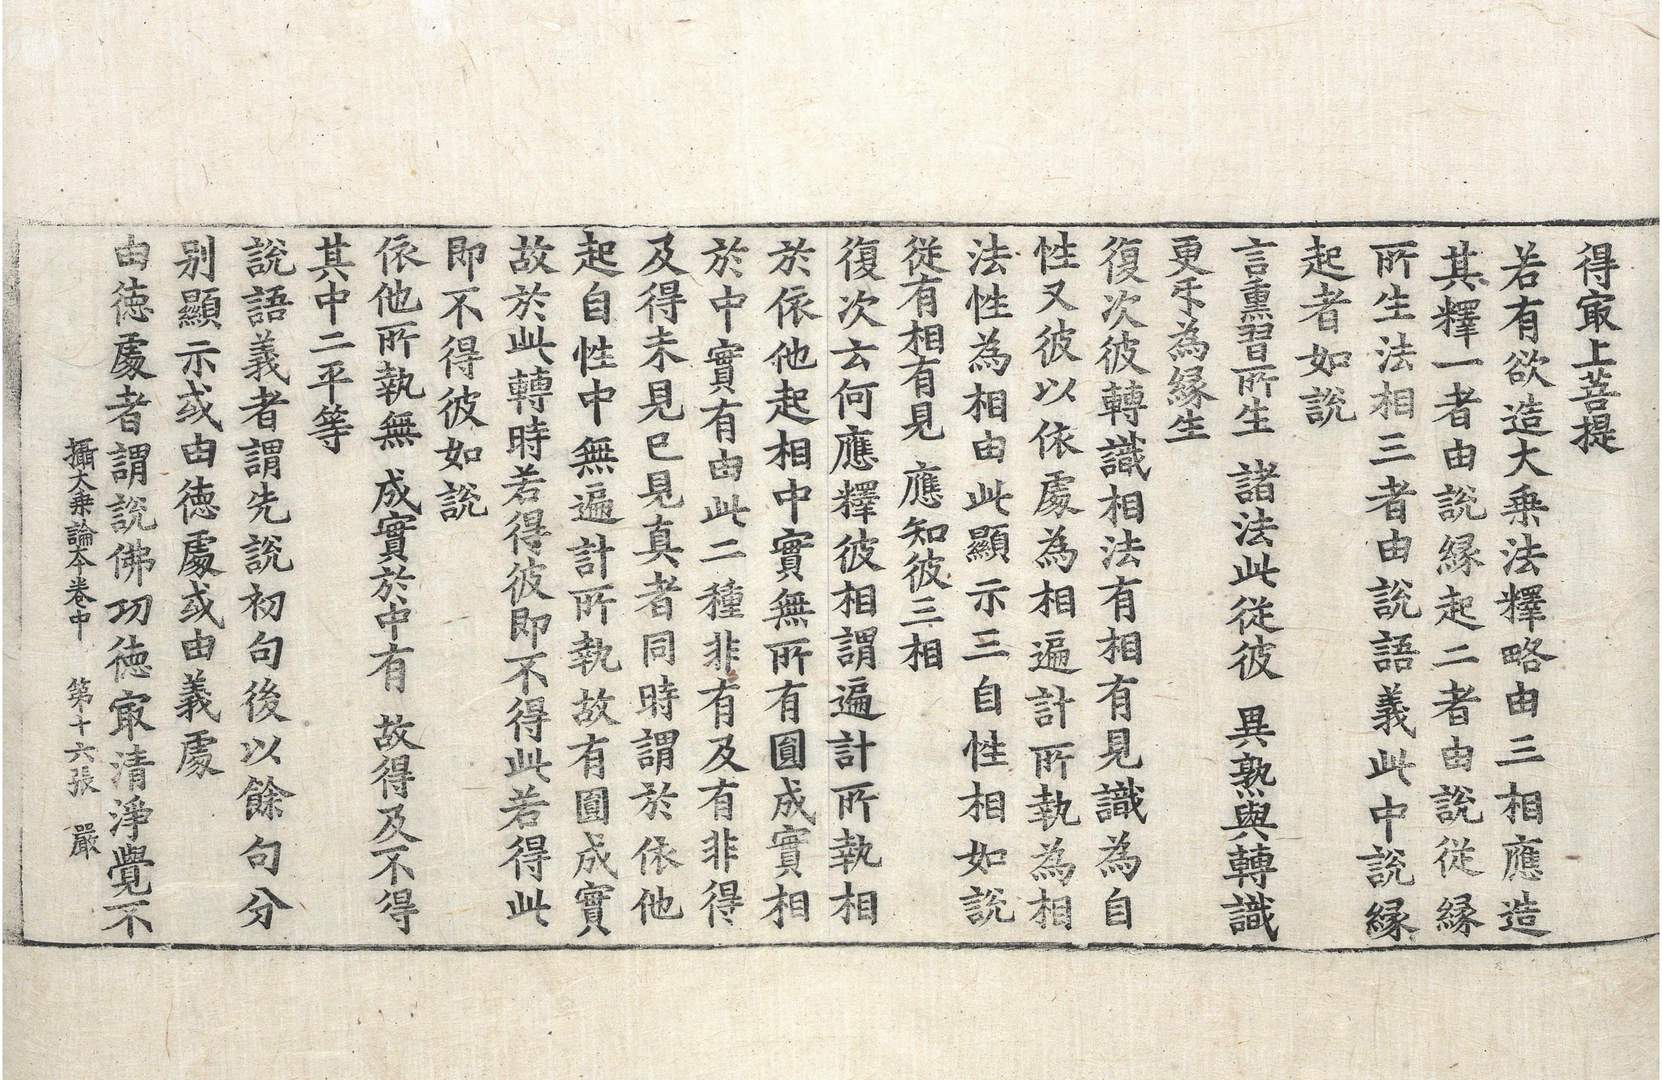 得冣上菩提
若有欲造大乗法釋略由三相應造
其釋一者由說縁起二者由說從縁
所生法相三者由說語義此中說縁
起者如說
言熏習所生　諸法此從彼　異熟與轉識
更㸦為縁生
復次彼轉識相法有相有見識為自
性又彼以依處為相遍計所執為相
法性為相由此顯示三自性相如說
從有相有見　應知彼三相
復次云何應釋彼相謂遍計所執相
於依他起相中實無所有圎成實相
於中實有由此二種非有及有非得
及得未見已見真者同時謂於依他
起自性中無遍計所執故有圎成實
故於此轉時若得彼即不得此若得此
即不得彼如說
依他所執無　成實於中有　故得及不得
其中二平等
說語義者謂先說初句後以餘句分
别顯示或由徳處或由義處
由徳處者謂說佛㓛徳冣清淨覺不
攝大乗論本卷中　第十六張　嚴